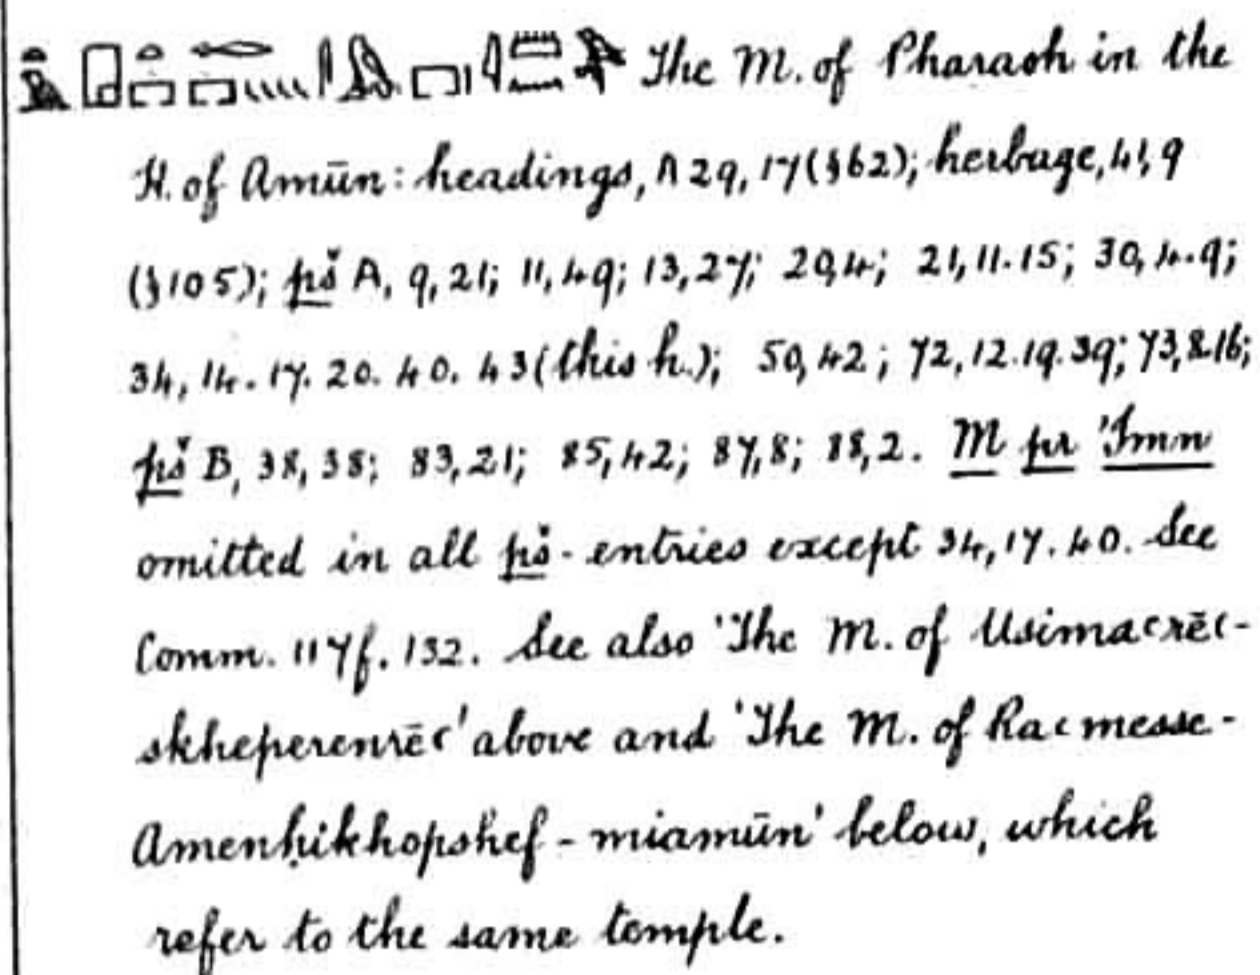 The M. of Pharaoh in the
H. of Amūn: headings, A 29, 17 (§62); herbage, 41, 9
(§105); pš A, 9, 21; 11, 49; 13, 27; 20, 4; 21, 11. 15; 30, 4. 9;
34, 14. 17. 20. 40. 43 (this h.); 50, 42; 72, 12. 19. 39; 73, 8. 16;
pš B, 38, 38; 83, 21; 85, 42; 87, 8; 88, 2. M pr 'Imn
omitted in all pš-entries except 34, 17. 40. See
Comm. 117f. 132. See also 'The M. of Usimaʿrēʿ-
skheperenrēʿ' above and 'The M. of Raʿmesse-
Amenḥikhopshef-miamūn' below, which
refer to the same temple.